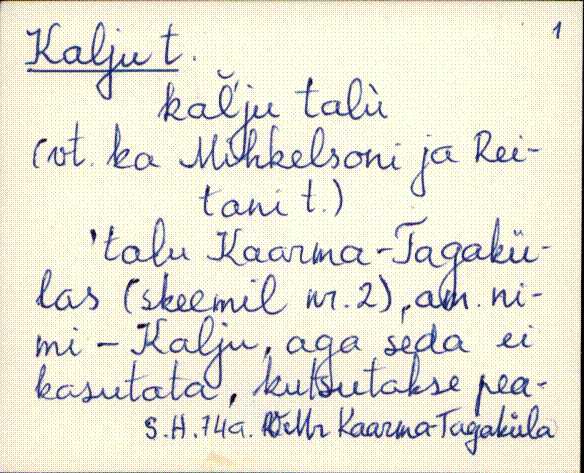 1
Kalju t.
kaľju talù
(vt. ka Mihkelsoni ja Rei-
tani t.)
'talu Kaarma-Tagakü-
las (skeemil nr. 2), am. ni-
mi – Kalju, aga seda ei
kasutata, kutsutakse pea-
S.H. 74a. Kaarma-Tagaküla